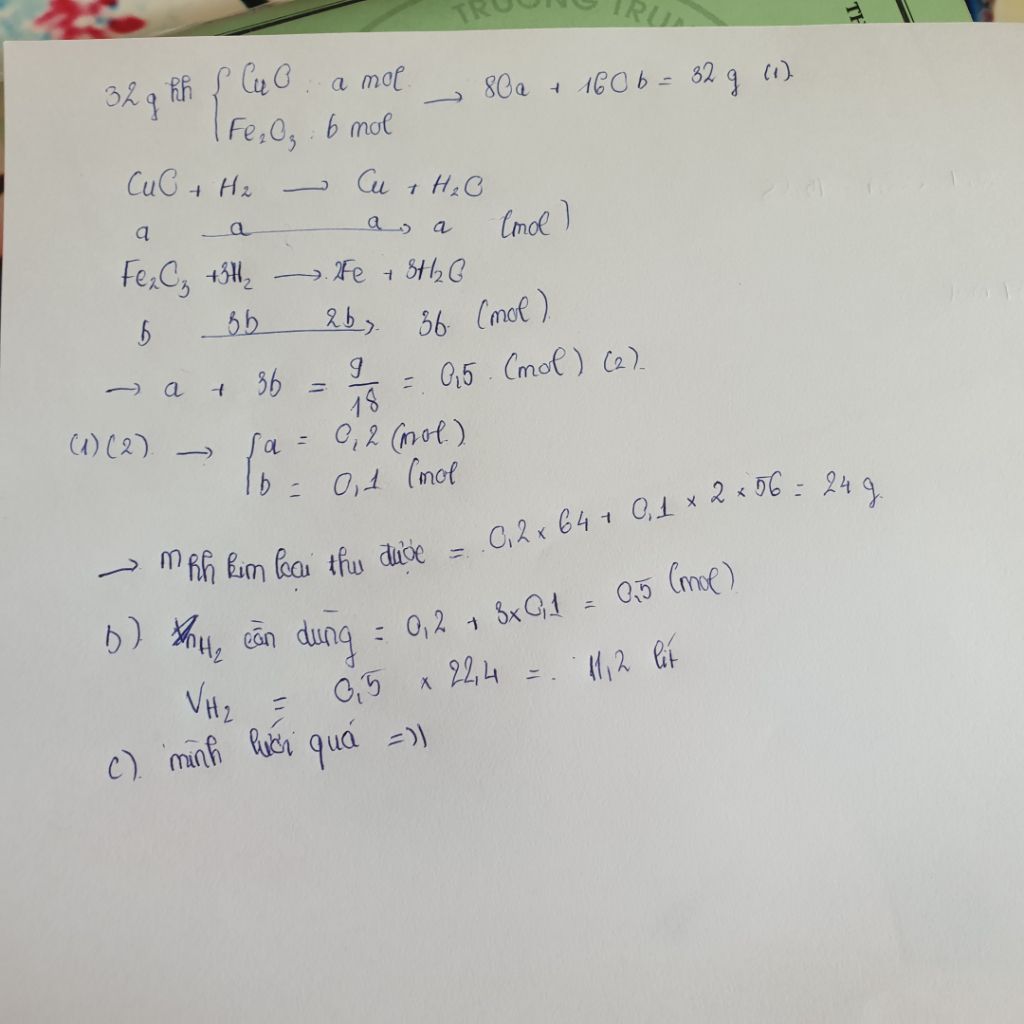 TRƯỜNG TRUN
TH
32g hh { CuO : a mol → 80a + 160b = 32 g (1)
Fe₂O₃ : b mol
CuO + H₂ → Cu + H₂O
a a a → a (mol)
Fe₂O₃ + 3H₂ → 2Fe + 3H₂O
b 3b 2b → 3b (mol)
→ a + 3b = 9/18 = 0,5 (mol) (2)
(1)(2) → { a = 0,2 (mol)
b = 0,1 (mol
→ m hh kim loại thu được = 0,2 × 64 + 0,1 × 2 × 56 = 24 g
b) nH₂ cần dùng = 0,2 + 3×0,1 = 0,5 (mol)
VH₂ = 0,5 × 22,4 = 11,2 lít
c) mình lười quá =))